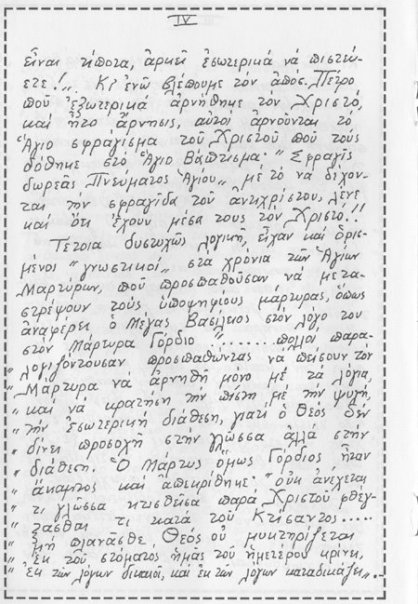 IV
εἶναι τίποτα, ἀρκεῖ ἐσωτερικά νά πιστεύ-
ετε!". Κι ἐνῶ βλέπουμε τόν ἀπόσ. Πέτρο
πού ἐξωτερικά ἀρνήθηκε τόν Χριστό,
καί ἦτο ἄρνησις, αὐτοί ἀρνοῦνται τό
Ἅγιο σφράγισμα τοῦ Χριστοῦ πού τούς
δόθηκε στό Ἅγιο Βάπτισμα: "Σφραγίς
δωρεᾶς Πνεύματος Ἁγίου" μέ τό νά δέχον-
ται τήν σφραγίδα τοῦ ἀντιχρίστου, λένε
καί ὅτι ἔχουν μέσα τους τόν Χριστό!!
Τέτοια δυστυχῶς λογική, εἶχαν καί ὁρισ-
μένοι "γνωστικοί" στά χρόνια τῶν Ἁγίων
Μαρτύρων, πού προσπαθοῦσαν νά μετα-
στρέψουν τούς ὑποψηφίους μάρτυρας, ὅπως
ἀναφέρει ὁ Μέγας Βασίλειος στόν λόγο του
στόν Μάρτυρα Γόρδιο "........πολλοί παρα-
"λογίζονταν προσπαθώντας νά πείσουν τόν
"Μάρτυρα νά ἀρνηθῆ μόνο μέ τά λόγια,
"καί νά κρατήση τήν πίστη μέ τήν ψυχή,
"τήν ἐσωτερική διάθεση, γιατί ὁ Θεός δέν
"δίνει προσοχή στήν γλῶσσα ἀλλά στήν
"διάθεση. Ὁ Μάρτυς ὅμως Γόρδιος ἦταν
"ἄκαμπτος καί ἀπεκρίθηκε: "οὐκ ἀνέχεται
"τι γλῶσσα κτισθεῖσα παρά Χριστοῦ φθέγ-
"ξασθαι τι κατά τοῦ Κτίσαντος.....
"Μή πλανᾶσθε, Θεός οὐ μυκτηρίζεται
"ἐκ τοῦ στόματος ἡμᾶς τοῦ ἡμετέρου κρίνει,
"ἐκ τῶν λόγων δικαιοῖ, καί ἐκ τῶν λόγων καταδικάζει"...